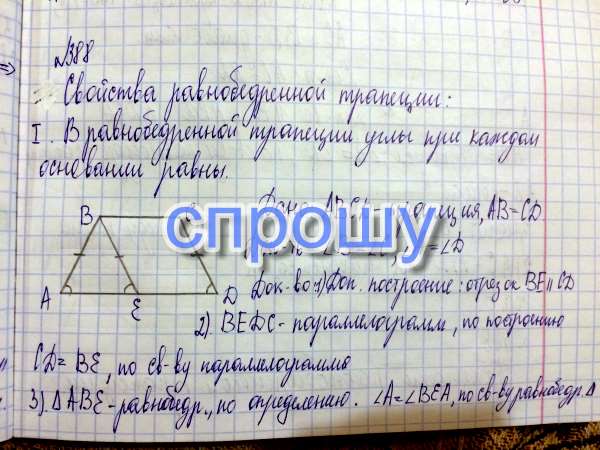 №388
Свойства равнобедренной трапеции:
I. В равнобедренной трапеции углы при каждом
основании равны.
B
Дано: ABCD - трапеция, AB=CD
спрошу
= ∠D
Док-во 1) Доп. построение: отрезок BE || CD
A E D
2). BEDC - параллелограмм, по построению
CD = BE, по св-ву параллелограмма
3). ΔABE - равнобедр., по определению. ∠A = ∠BEA, по св-ву равнобедр. Δ